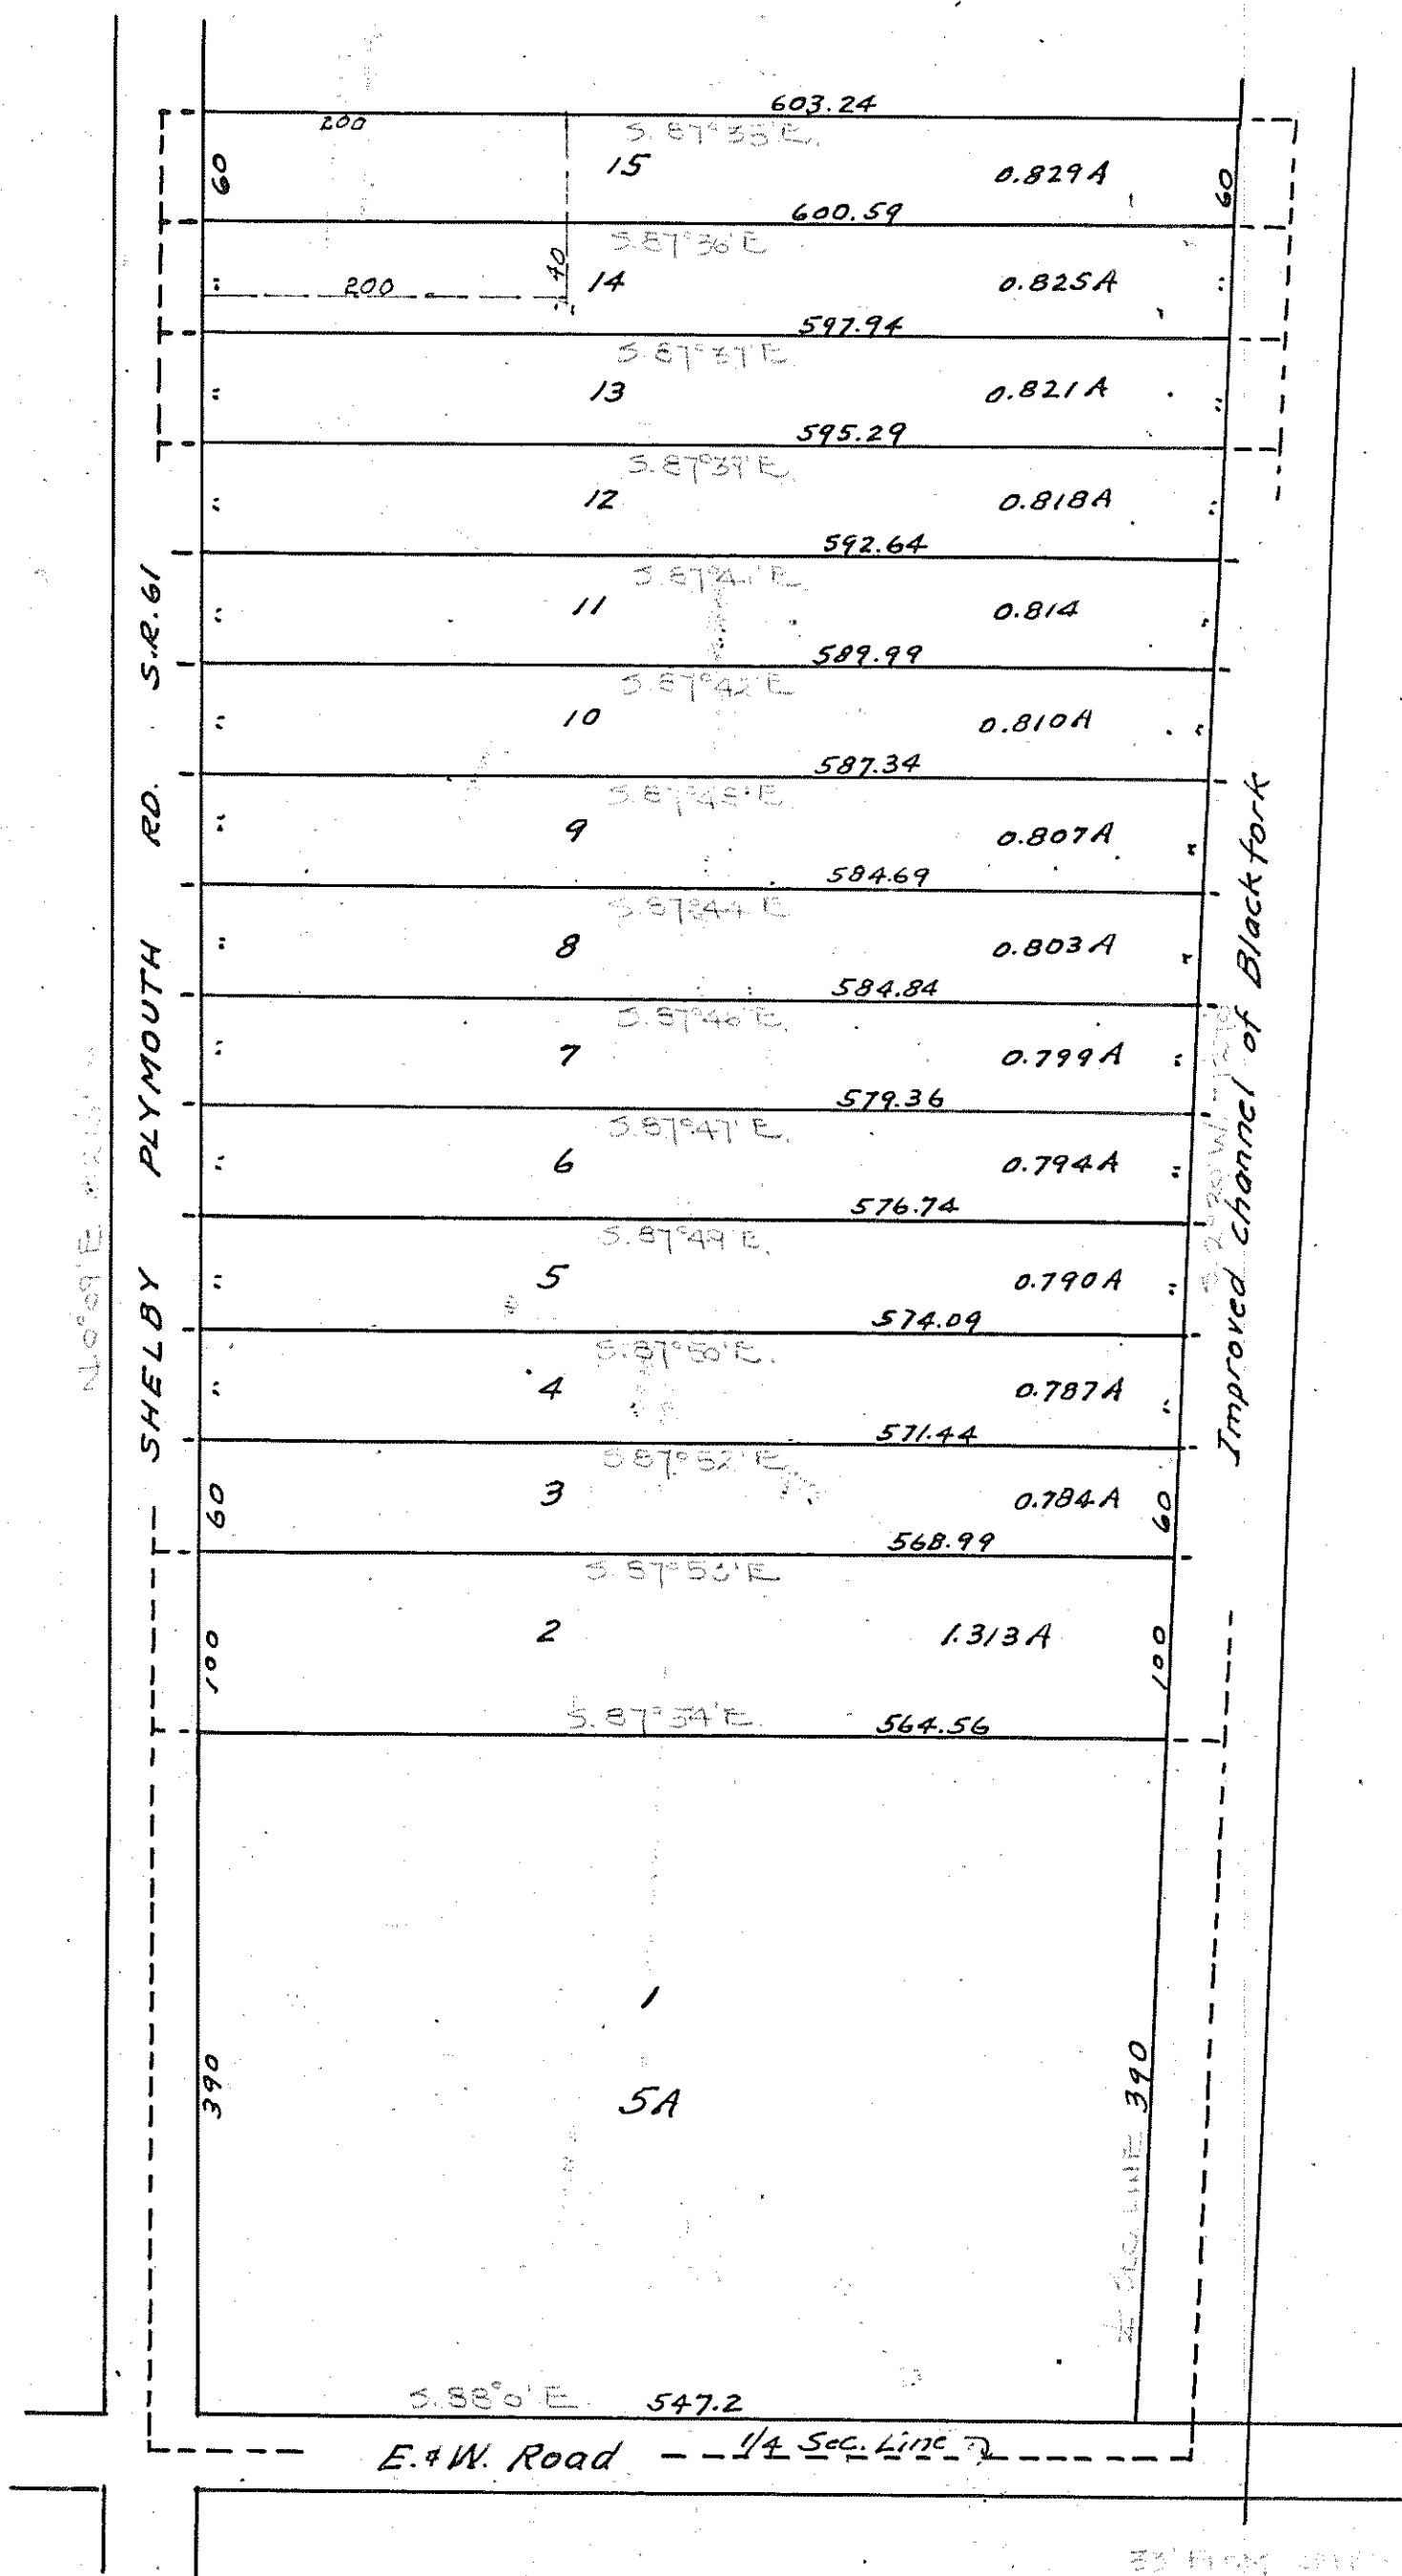 603.24
200
S. 87°35' E.
60
15
0.829 A
60
600.59
S. 87°36' E
40
200
14
0.825 A
597.94
S. 87°37' E.
13
0.821 A
595.29
S. 87°37' E.
12
0.818 A
592.64
S. 87°
11
0.814
589.99
S. 87°42' E
10
0.810 A
587.34
S. 87°43' E
9
0.807 A
584.69
S. 87°44' E
8
0.803 A
584.84
S. 87°46' E.
7
0.799 A
579.36
S. 87°47' E.
6
0.794 A
576.74
S. 87°49' E.
5
0.790 A
574.09
S. 87°50' E.
4
0.787 A
571.44
S 87°52' E
60
3
0.784 A
60
568.99
S. 87°
100
2
1.313 A
100
S. 87°54' E.
564.56
390
1
5A
390
1/4 Sec. LINE
S. 88°0' E.
547.2
E. & W. Road
1/4 Sec. Line
SHELBY PLYMOUTH RD. S.R. 61
N 0°09' E
Improved channel of Blackfork
33' FROM